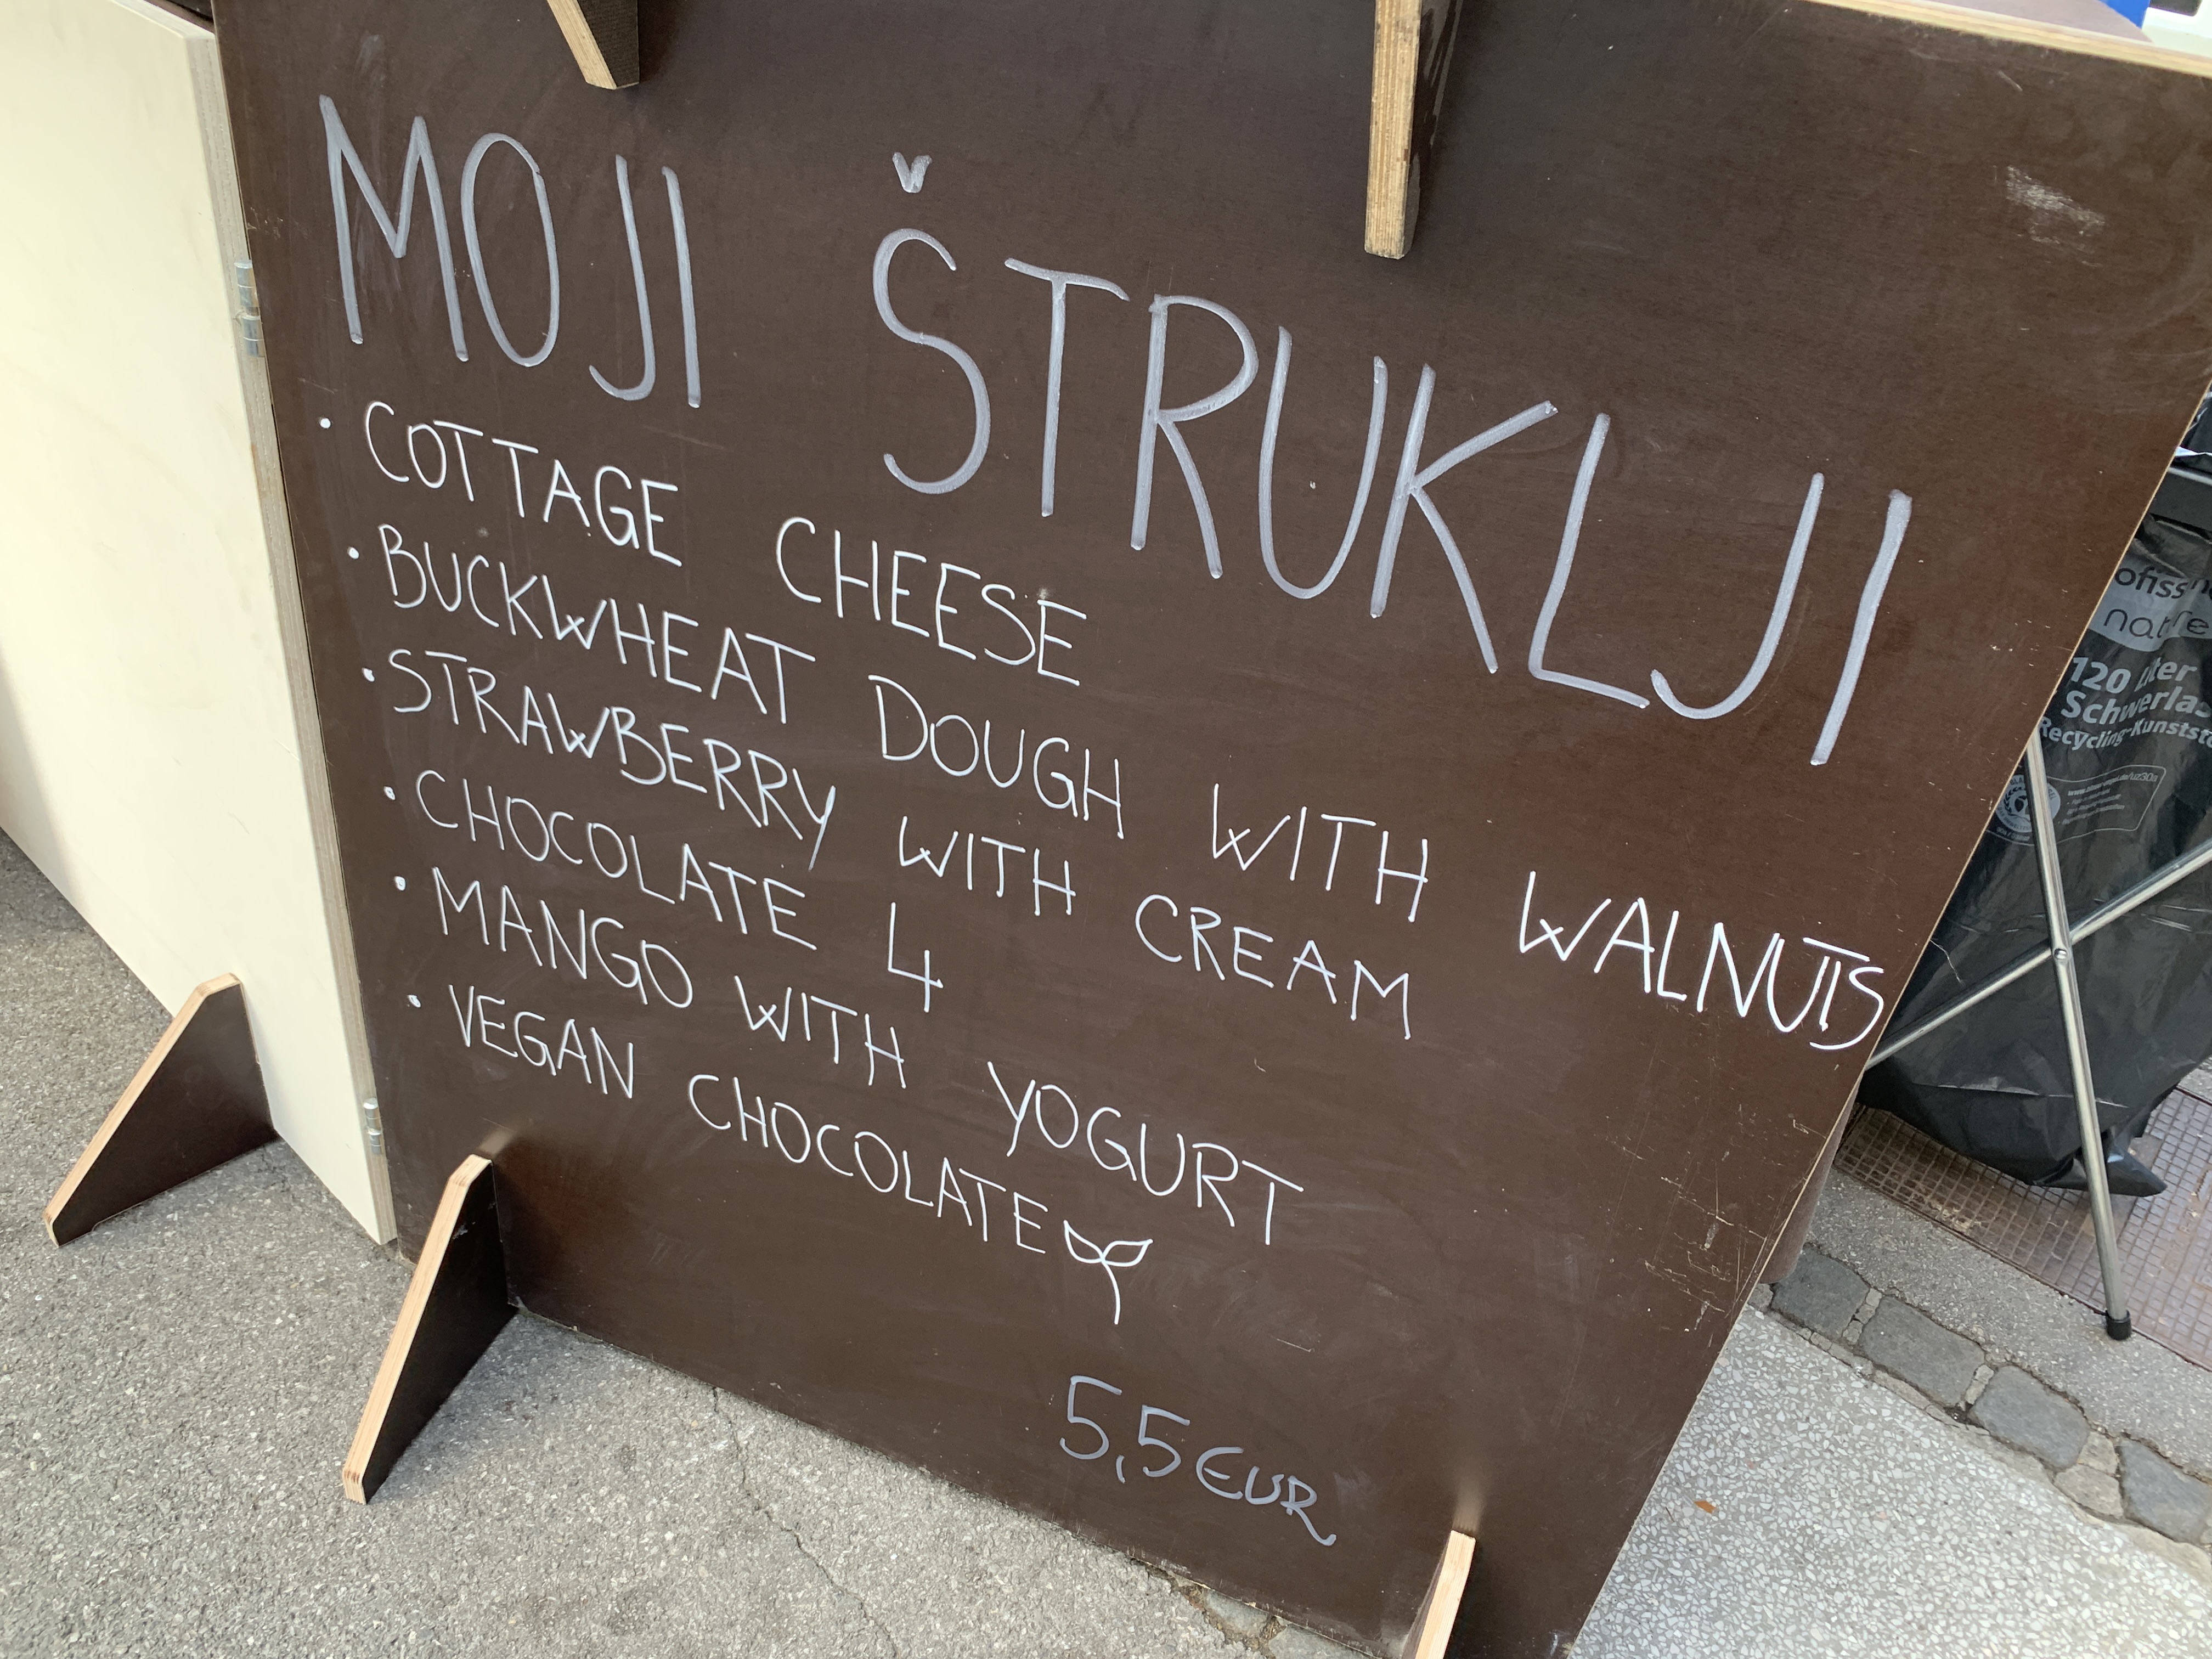 MOJI ŠTRUKLJI
• COTTAGE CHEESE
• BUCKWHEAT DOUGH WITH WALNUTS
• STRAWBERRY WITH CREAM
• CHOCOLATE 4
• MANGO WITH YOGURT
• VEGAN CHOCOLATE
5,5 EUR
120 Liter